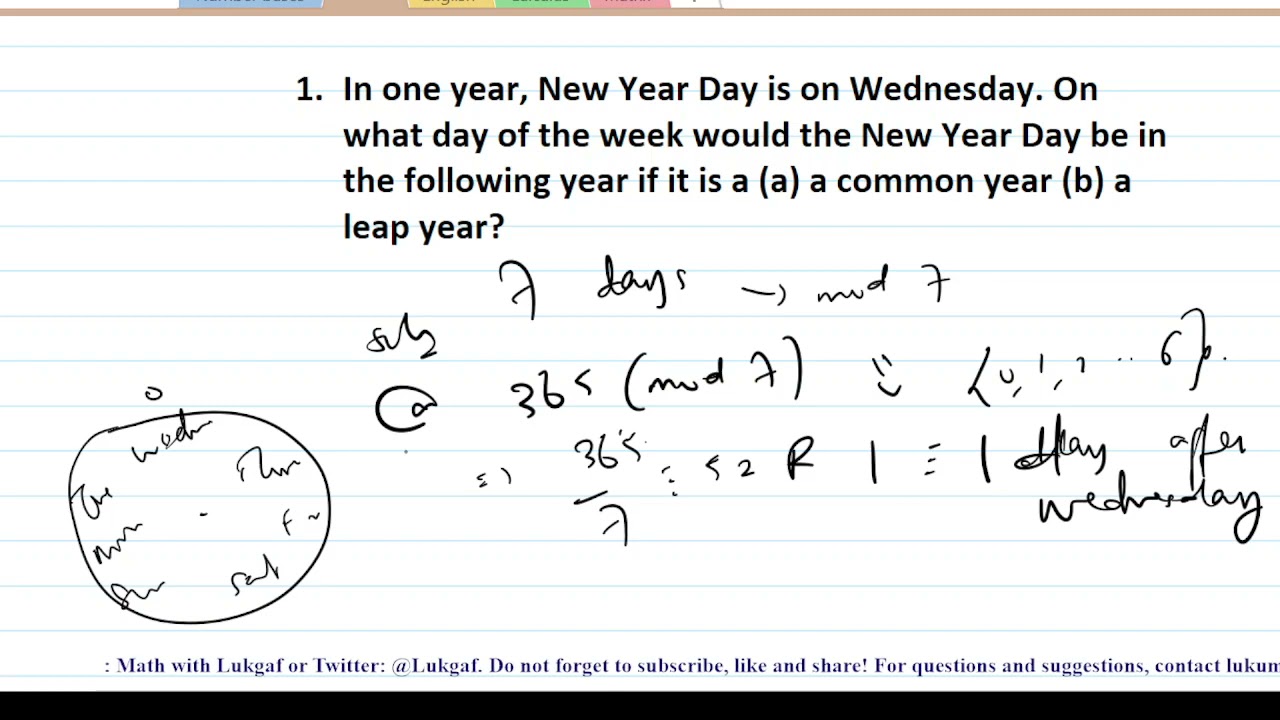 Number bases English Calculus Matrix
1. In one year, New Year Day is on Wednesday. On
what day of the week would the New Year Day be in
the following year if it is a (a) a common year (b) a
leap year?
7 days → mod 7
soln
(a) 365 (mod 7) ⇒ {0, 1, 2 ... 6}.
⇒ 365/7 = 52 R 1 ≡ 1 day after
wednesday
0
wedn
Thur
Tue
Mon
Sun
Sat
: Math with Lukgaf or Twitter: @Lukgaf. Do not forget to subscribe, like and share! For questions and suggestions, contact lukum